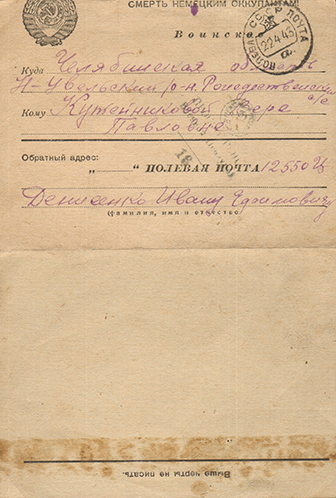 СМЕРТЬ НЕМЕЦКИМ ОККУПАНТАМ!
Воинское
Куда Челябинская область
Н-Увельский р-н. Рождественский с/с
Кому Кутейниковой Вере
Павловне
ПОЛЕВАЯ ПОЧТА
22.4.43
Обратный адрес:
„ “ ПОЛЕВАЯ ПОЧТА 12550 Ц
Денисенко Ивану Ефимовичу
(фамилия, имя и отчество)
Выше черты не писать.